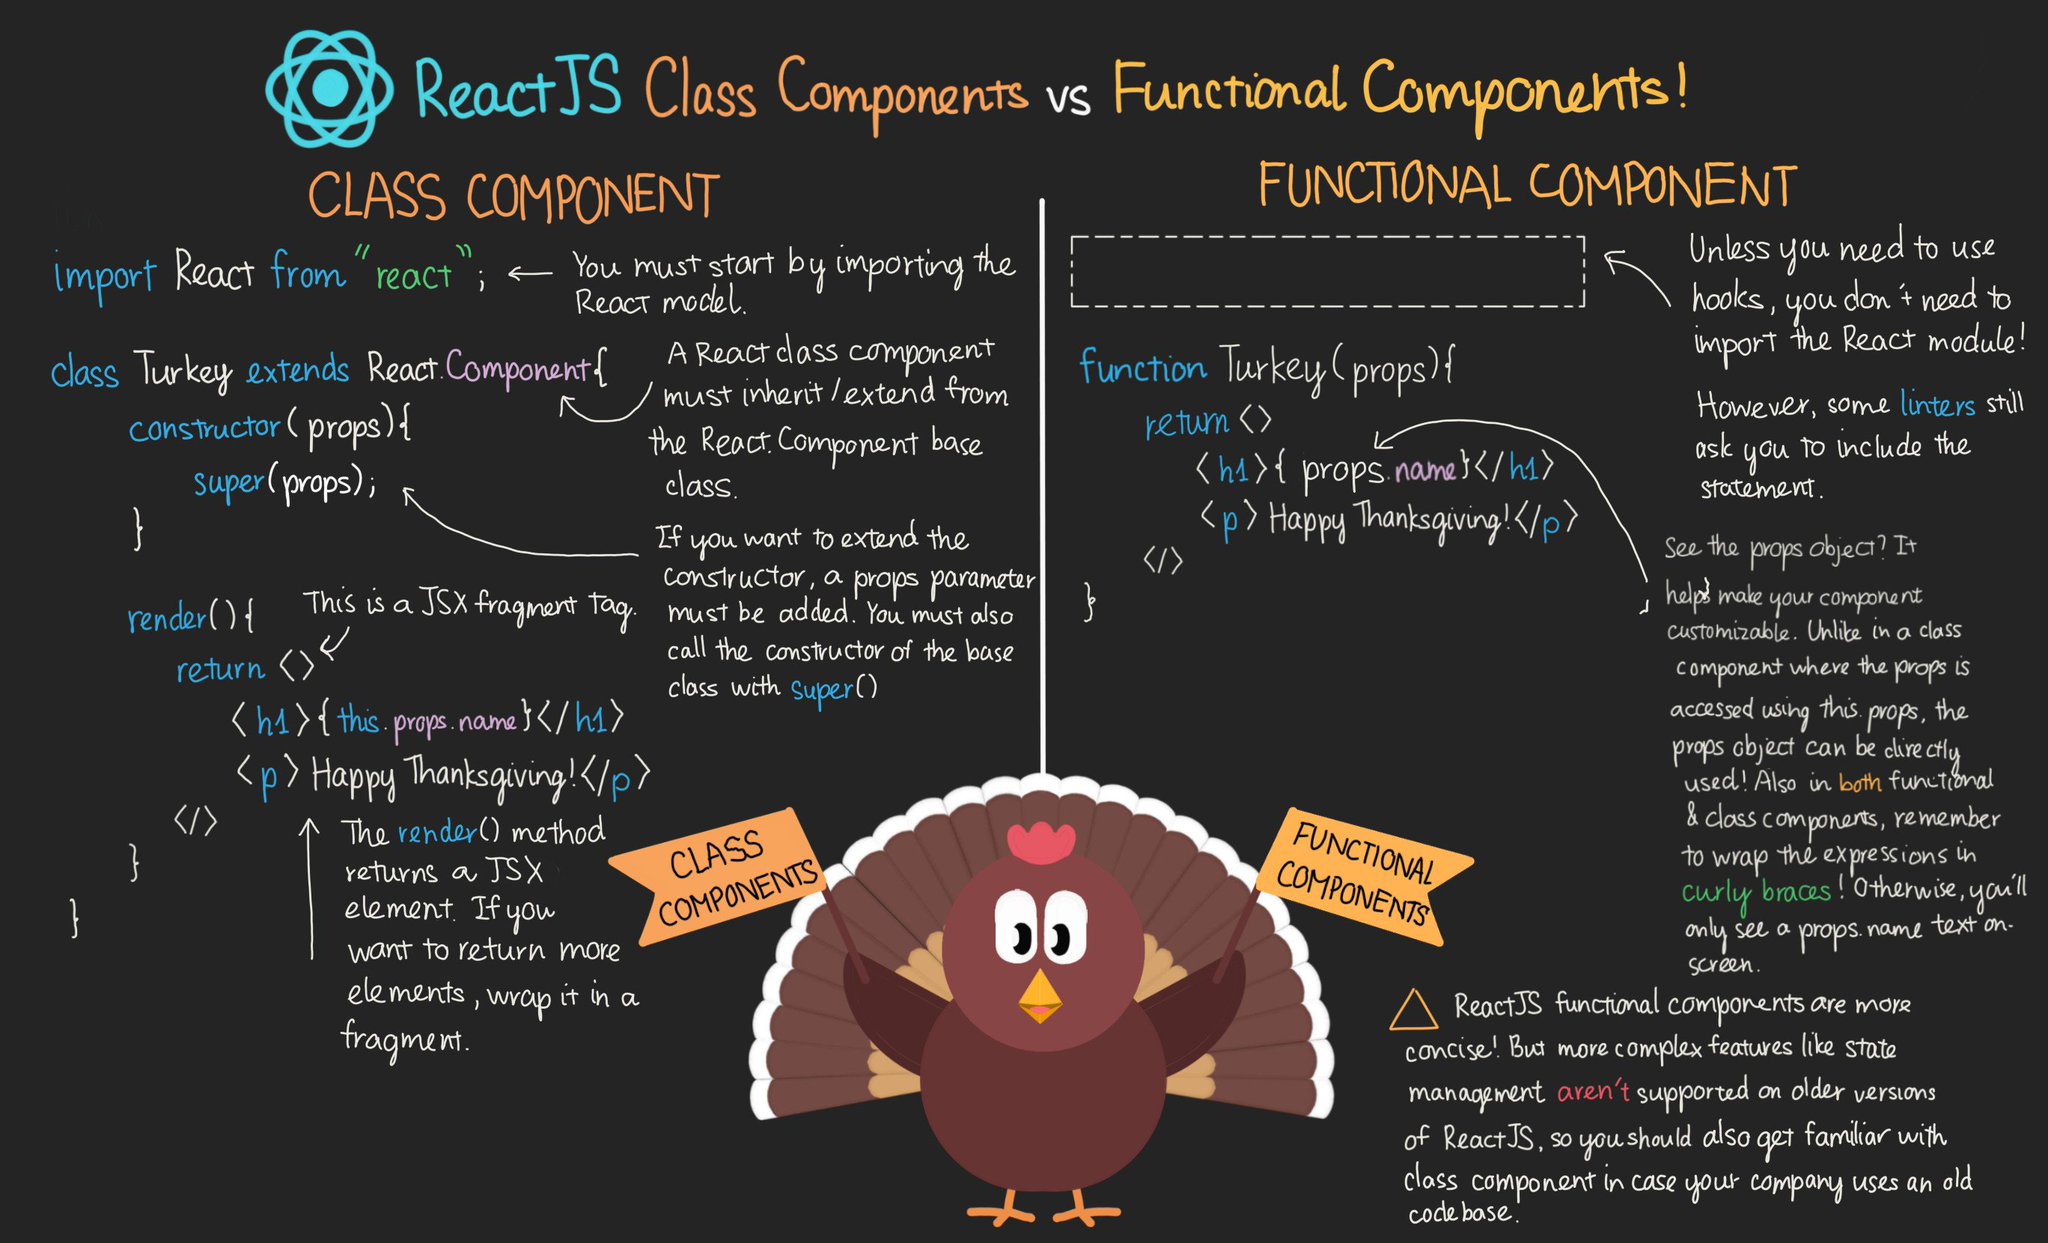 ReactJS Class Components vs Functional Components!
CLASS COMPONENT
import React from "react";
You must start by importing the
React model.
class Turkey extends React.Component{
A React class component
must inherit/extend from
the React.Component base
class.
constructor(props){
super(props);
}
If you want to extend the
constructor, a props parameter
must be added. You must also
call the constructor of the base
class with super()
render(){
This is a JSX fragment tag.
return <>
<h1>{this.props.name}</h1>
<p>Happy Thanksgiving!</p>
</>
}
}
The render() method
returns a JSX
element. If you
want to return more
elements, wrap it in a
fragment.
FUNCTIONAL COMPONENT
Unless you need to use
hooks, you don't need to
import the React module!
However, some linters still
ask you to include the
statement.
function Turkey(props){
return <>
<h1>{props.name}</h1>
<p>Happy Thanksgiving!</p>
</>
}
See the props object? It
helps make your component
customizable. Unlike in a class
component where the props is
accessed using this.props, the
props object can be directly
used! Also in both functional
& class components, remember
to wrap the expressions in
curly braces! Otherwise, you'll
only see a props.name text on-
screen.
CLASS
COMPONENTS
FUNCTIONAL
COMPONENTS
ReactJS functional components are more
concise! But more complex features like state
management aren't supported on older versions
of ReactJS, so you should also get familiar with
class component in case your company uses an old
codebase.